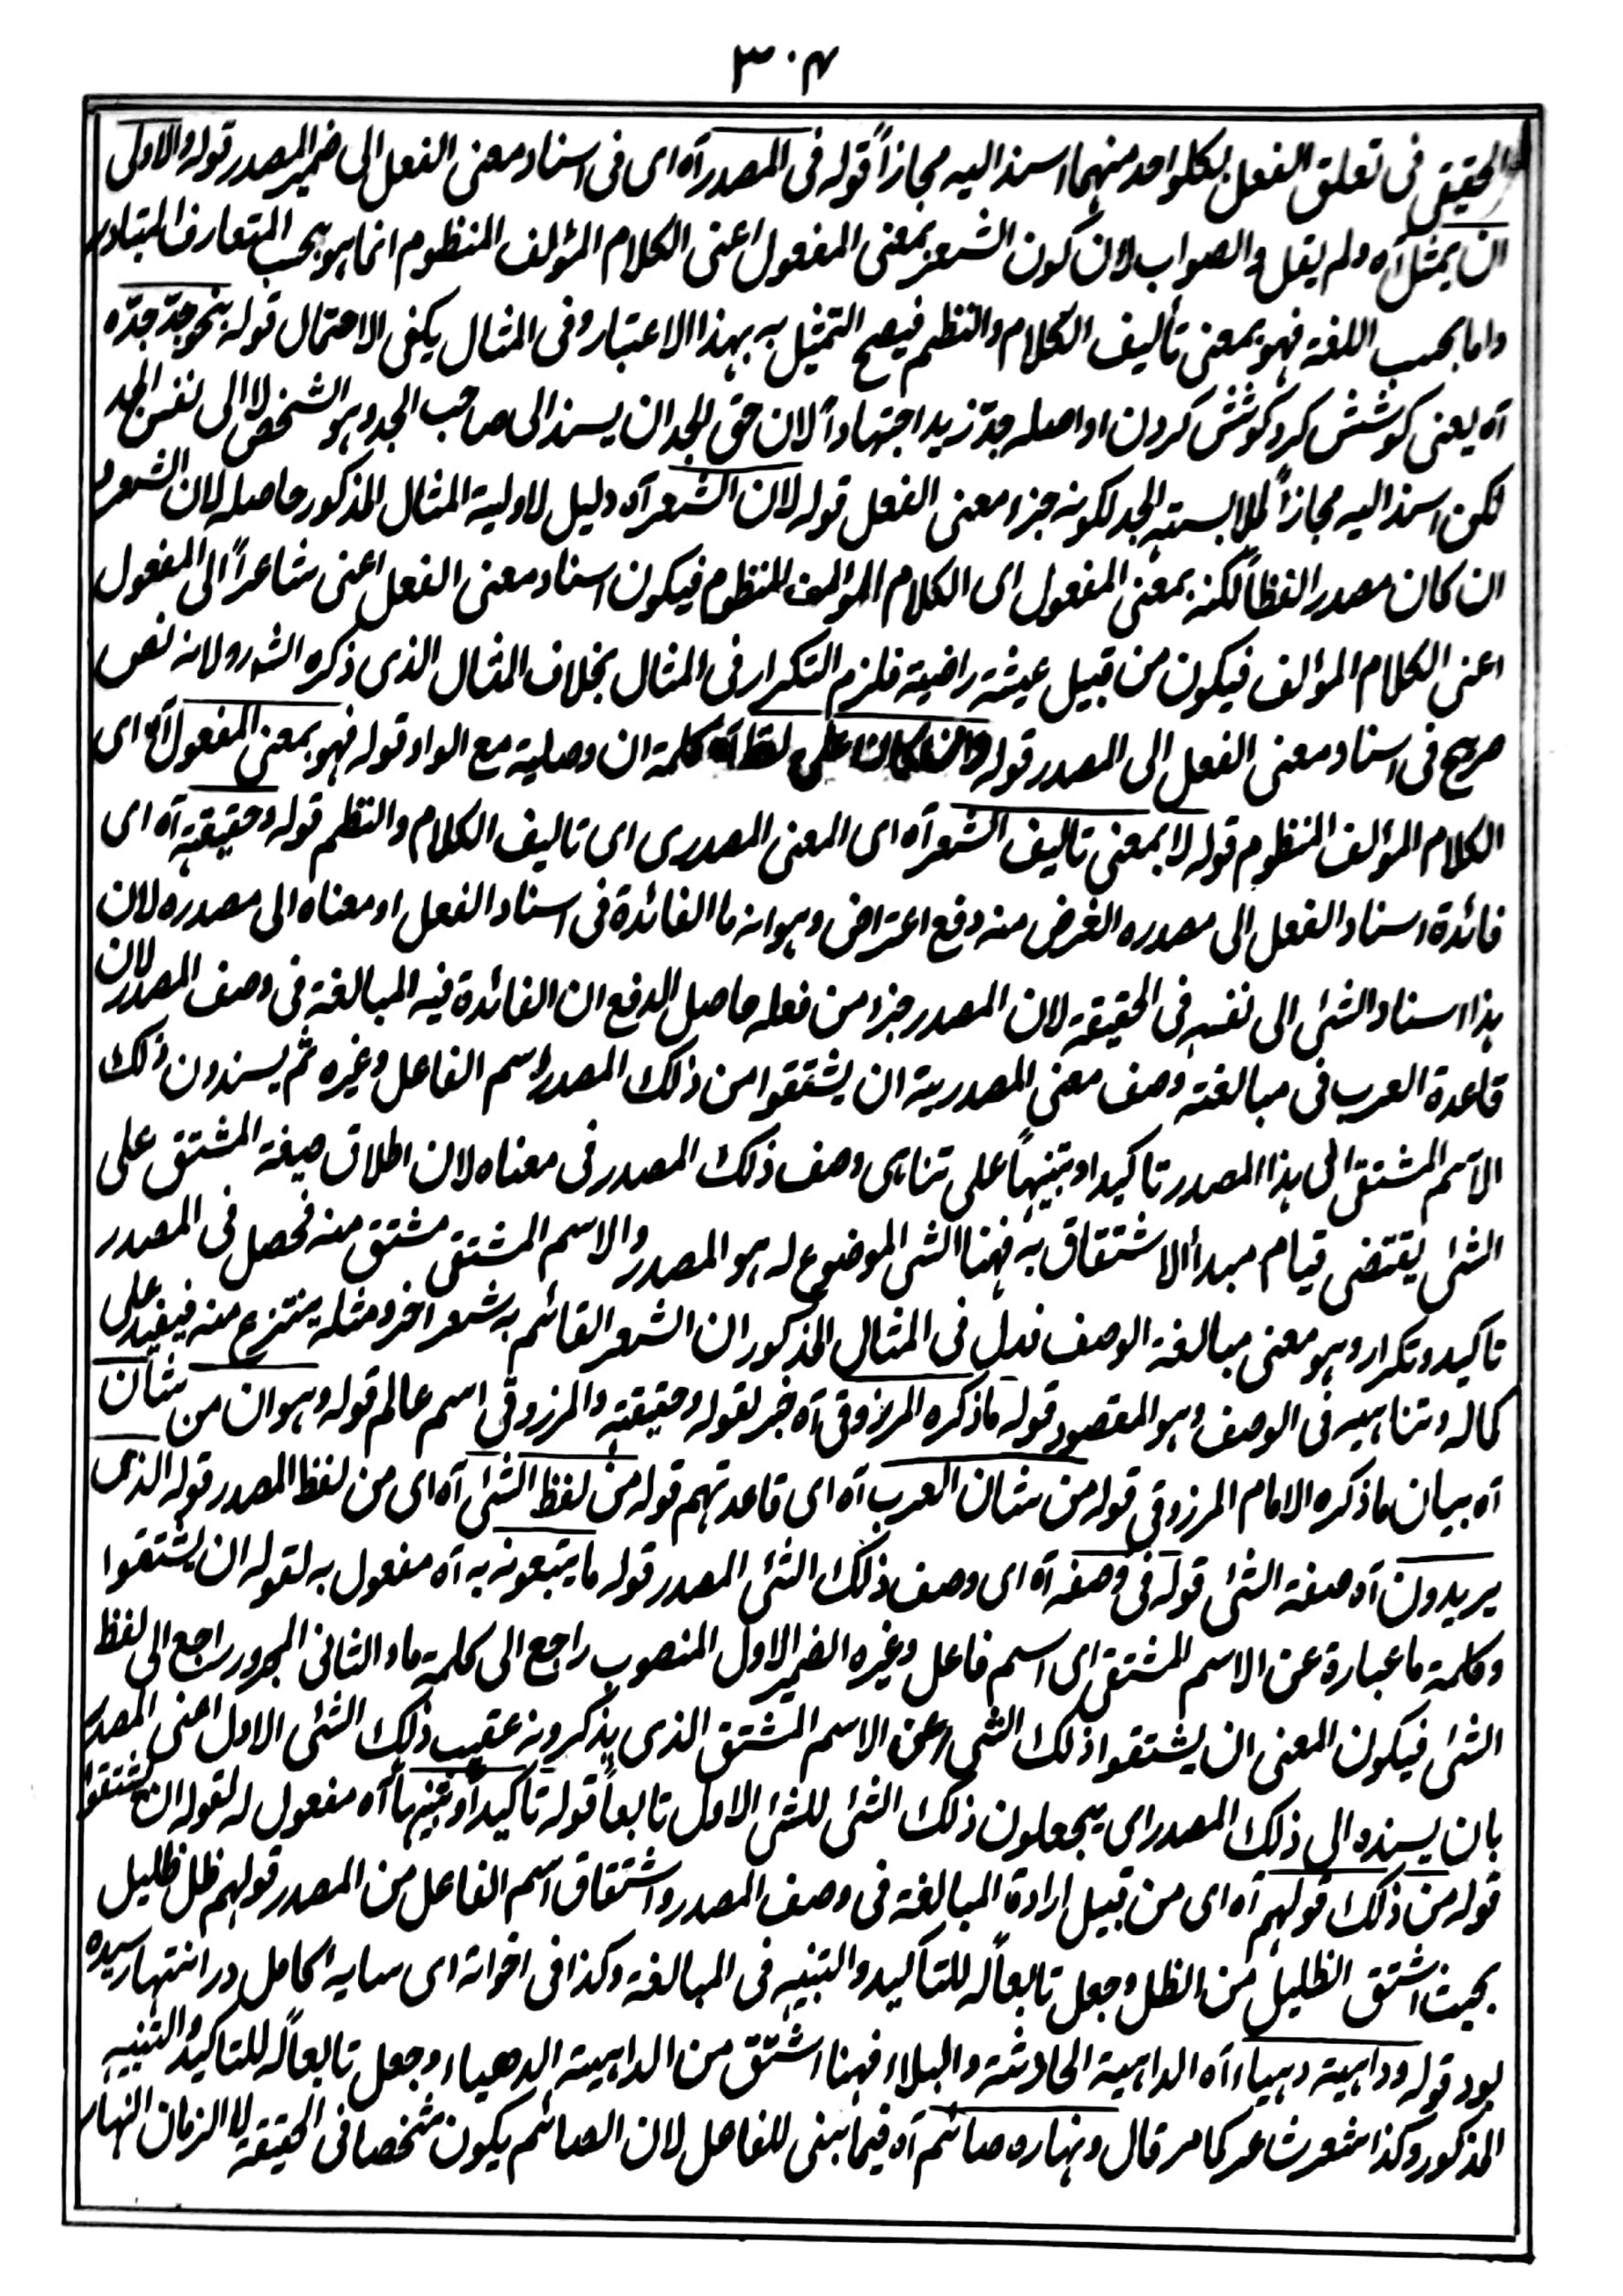 ٣٠٤
الحقيقى فى تعلق الفعل بكلواحد منهما اسند اليه مجازاً قوله فى المصدر آه اى فى اسناد معنى الفعل الى ضمير المصدر قوله والاولى
ان يمثل آه ولم يقل والصواب لان كون الشعر بمعنى المفعول اعنى الكلام المؤلف المنظوم انما هو بحسب المتعارف المتبادر
واما بحسب اللغة فهو بمعنى تأليف الكلام والنظم فيصح التمثيل به بهذا الاعتبار وفى المثال يكفى الاحتمال قوله نحو جدّ جدّه
آه يعنى كوشش كرد كوشش كردن او اصله جدّ زيد اجتهاداً لان حق الجد ان يسند الى صاحب الجد وهو الشخص لا الى نفس الجد
لكن اسند اليه مجازاً لملابسته الجد لكونه جزء معنى الفعل قوله لان الشعر آه دليل لاولية المثال المذكور حاصله لان الشعر
ان كان مصدر الفظاً لكنه بمعنى المفعول اى الكلام المؤلف المنظوم فيكون اسناد معنى الفعل اعنى شاعراً الى المفعول
اعنى الكلام المؤلف فيكون من قبيل عيشة راضية فلزم التكرار فى المثال بخلاف المثال الذى ذكره الشه رو لانه نص
صريح فى اسناد معنى الفعل الى المصدر قوله وان كان على لفظ آه كلمة ان وصلية مع الواو قوله فهو بمعنى المفعول آه اى
الكلام المؤلف المنظوم قوله لا بمعنى تاليف الشعر آه اى المعنى المصدرى اى تاليف الكلام والنظم قوله وحقيقته آه اى
فائدة اسناد الفعل الى مصدره الغرض منه دفع اعتراض وهو انه ما الفائدة فى اسناد الفعل او معناه الى مصدره لان
هذا اسناد الشئ الى نفسه فى الحقيقة لان المصدر جزء من فعله حاصل الدفع ان الفائدة فيه المبالغة فى وصف المصدر لان
قاعدة العرب فى مبالغة وصف معنى المصدرية ان يشتقوا من ذلك المصدر اسم الفاعل وغيره ثم يسندون ذلك
الاسم المشتق الى هذا المصدر تاكيدا وتنبيهاً على تناهى وصف ذلك المصدر فى معناه لان اطلاق صيغة المشتق على
الشئ يقتضى قيام مبدأ الاشتقاق به فههنا الشئ الموضوع له هو المصدر والاسم المشتق مشتق منه فحصل فى المصدر
تاكيد وتكرار وهو معنى مبالغة الوصف فدل فى المثال المذكور ان الشعر القائم به شعر اخر ومثله ينتزع منه فيفيد على
كماله وتناهيه فى الوصف وهو المقصود قوله ما ذكره المرزوقى آه خبر لقوله وحقيقته والمرزوقى اسم عالم قوله وهو ان من شأن
آه بيان ما ذكره الامام المرزوقى قوله من شان العرب آه اى قاعدتهم قوله من لفظ الشئ آه اى من لفظ المصدر قوله الذى
يريدون آه صفة الشئ قوله فى وصفه آه اى وصف ذلك الشئ المصدر قوله ما يتبعونه به آه مفعول به لقوله ان يشتقوا
وكلمة ما عبارة عن الاسم المشتق اى اسم فاعل وغيره الضمير الاول المنصوب راجع الى كلمة ما والثانى المجرور راجع الى لفظ
الشئ فيكون المعنى ان يشتقوا ذلك الشئ عن الاسم المشتق الذى يذكرونه عقيب ذلك الشئ الاول اعنى المصدر
بان يسنده الى ذلك المصدر اى يجعلون ذلك الشئ للشئ الاول تابعاً قوله تاكيدا وتنبيهاً آه مفعول له لقوله ان يشتقوا
قوله من ذلك قولهم آه اى من قبيل ارادة المبالغة فى وصف المصدر واشتقاق اسم الفاعل من المصدر قولهم ظل ظليل
بحيث اشتق الظليل من الظل وجعل تابعاً له للتاكيد والتنبيه فى المبالغة وكذا فى اخواته اى سايه اكامل در انتها رسيده
بود قوله وداهية دهياء آه الداهية الحادثة والبلاء فههنا اشتق من الداهية الدهياء وجعل تابعاً له للتاكيد والتنبيه
المذكور وكذا شعر شاعر كما مر قال ونهاره صائم آه فيما بنى للفاعل لان الصائم يكون شخصا فى الحقيقة لا الزمان النهار